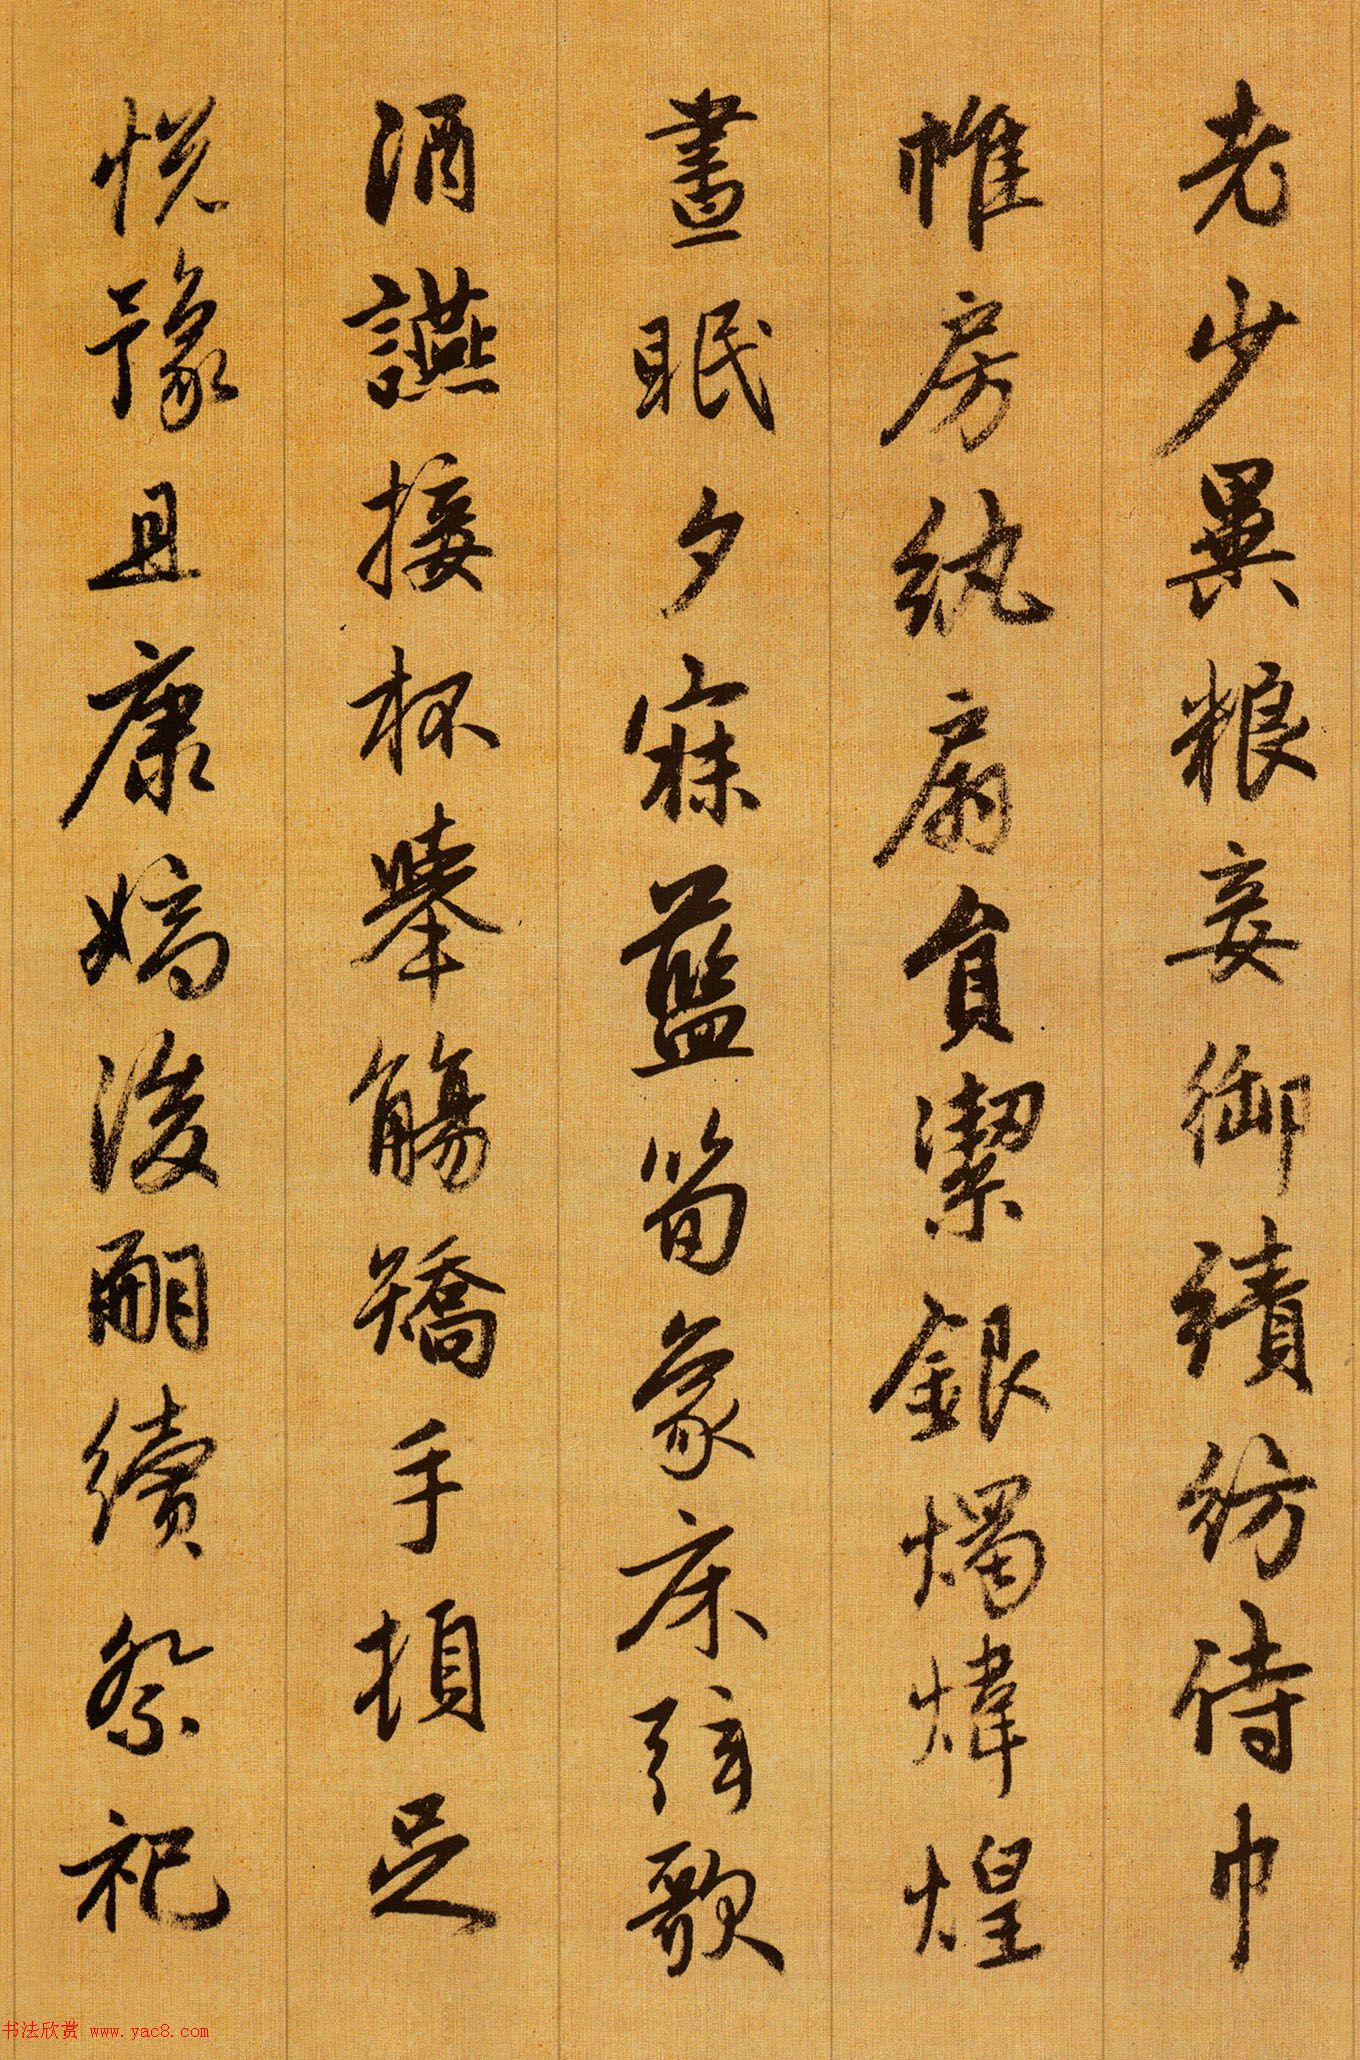 老少異粮妾御績紡侍巾
帷房紈扇員潔銀燭煒煌
晝眠夕寐藍筍象床弦歌
酒讌接杯舉觴矯手頓足
悅豫且康嫡後嗣續祭祀
书法欣赏 www.yac8.com